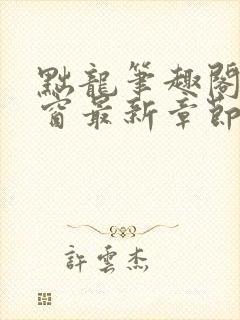 點龍筆趣閣
窗最新章節
許雲杰